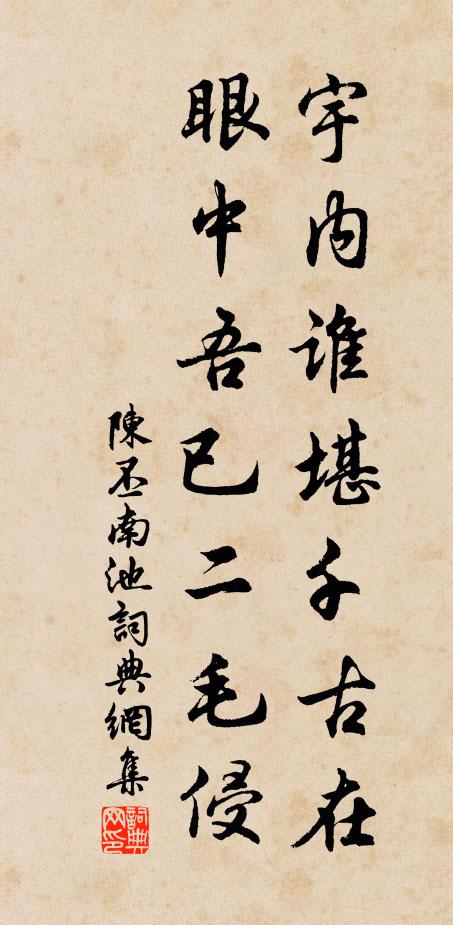 宇内誰堪千古在
眼中吾已二毛侵
陳丕南池詞典網集
詞典網印